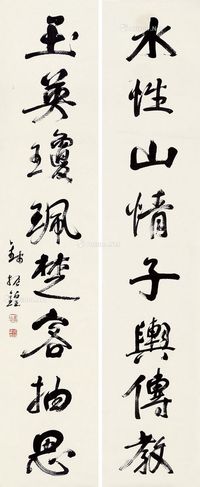 水性山情子輿傳教
玉英瓊珮楚客抽思
錢振鍠